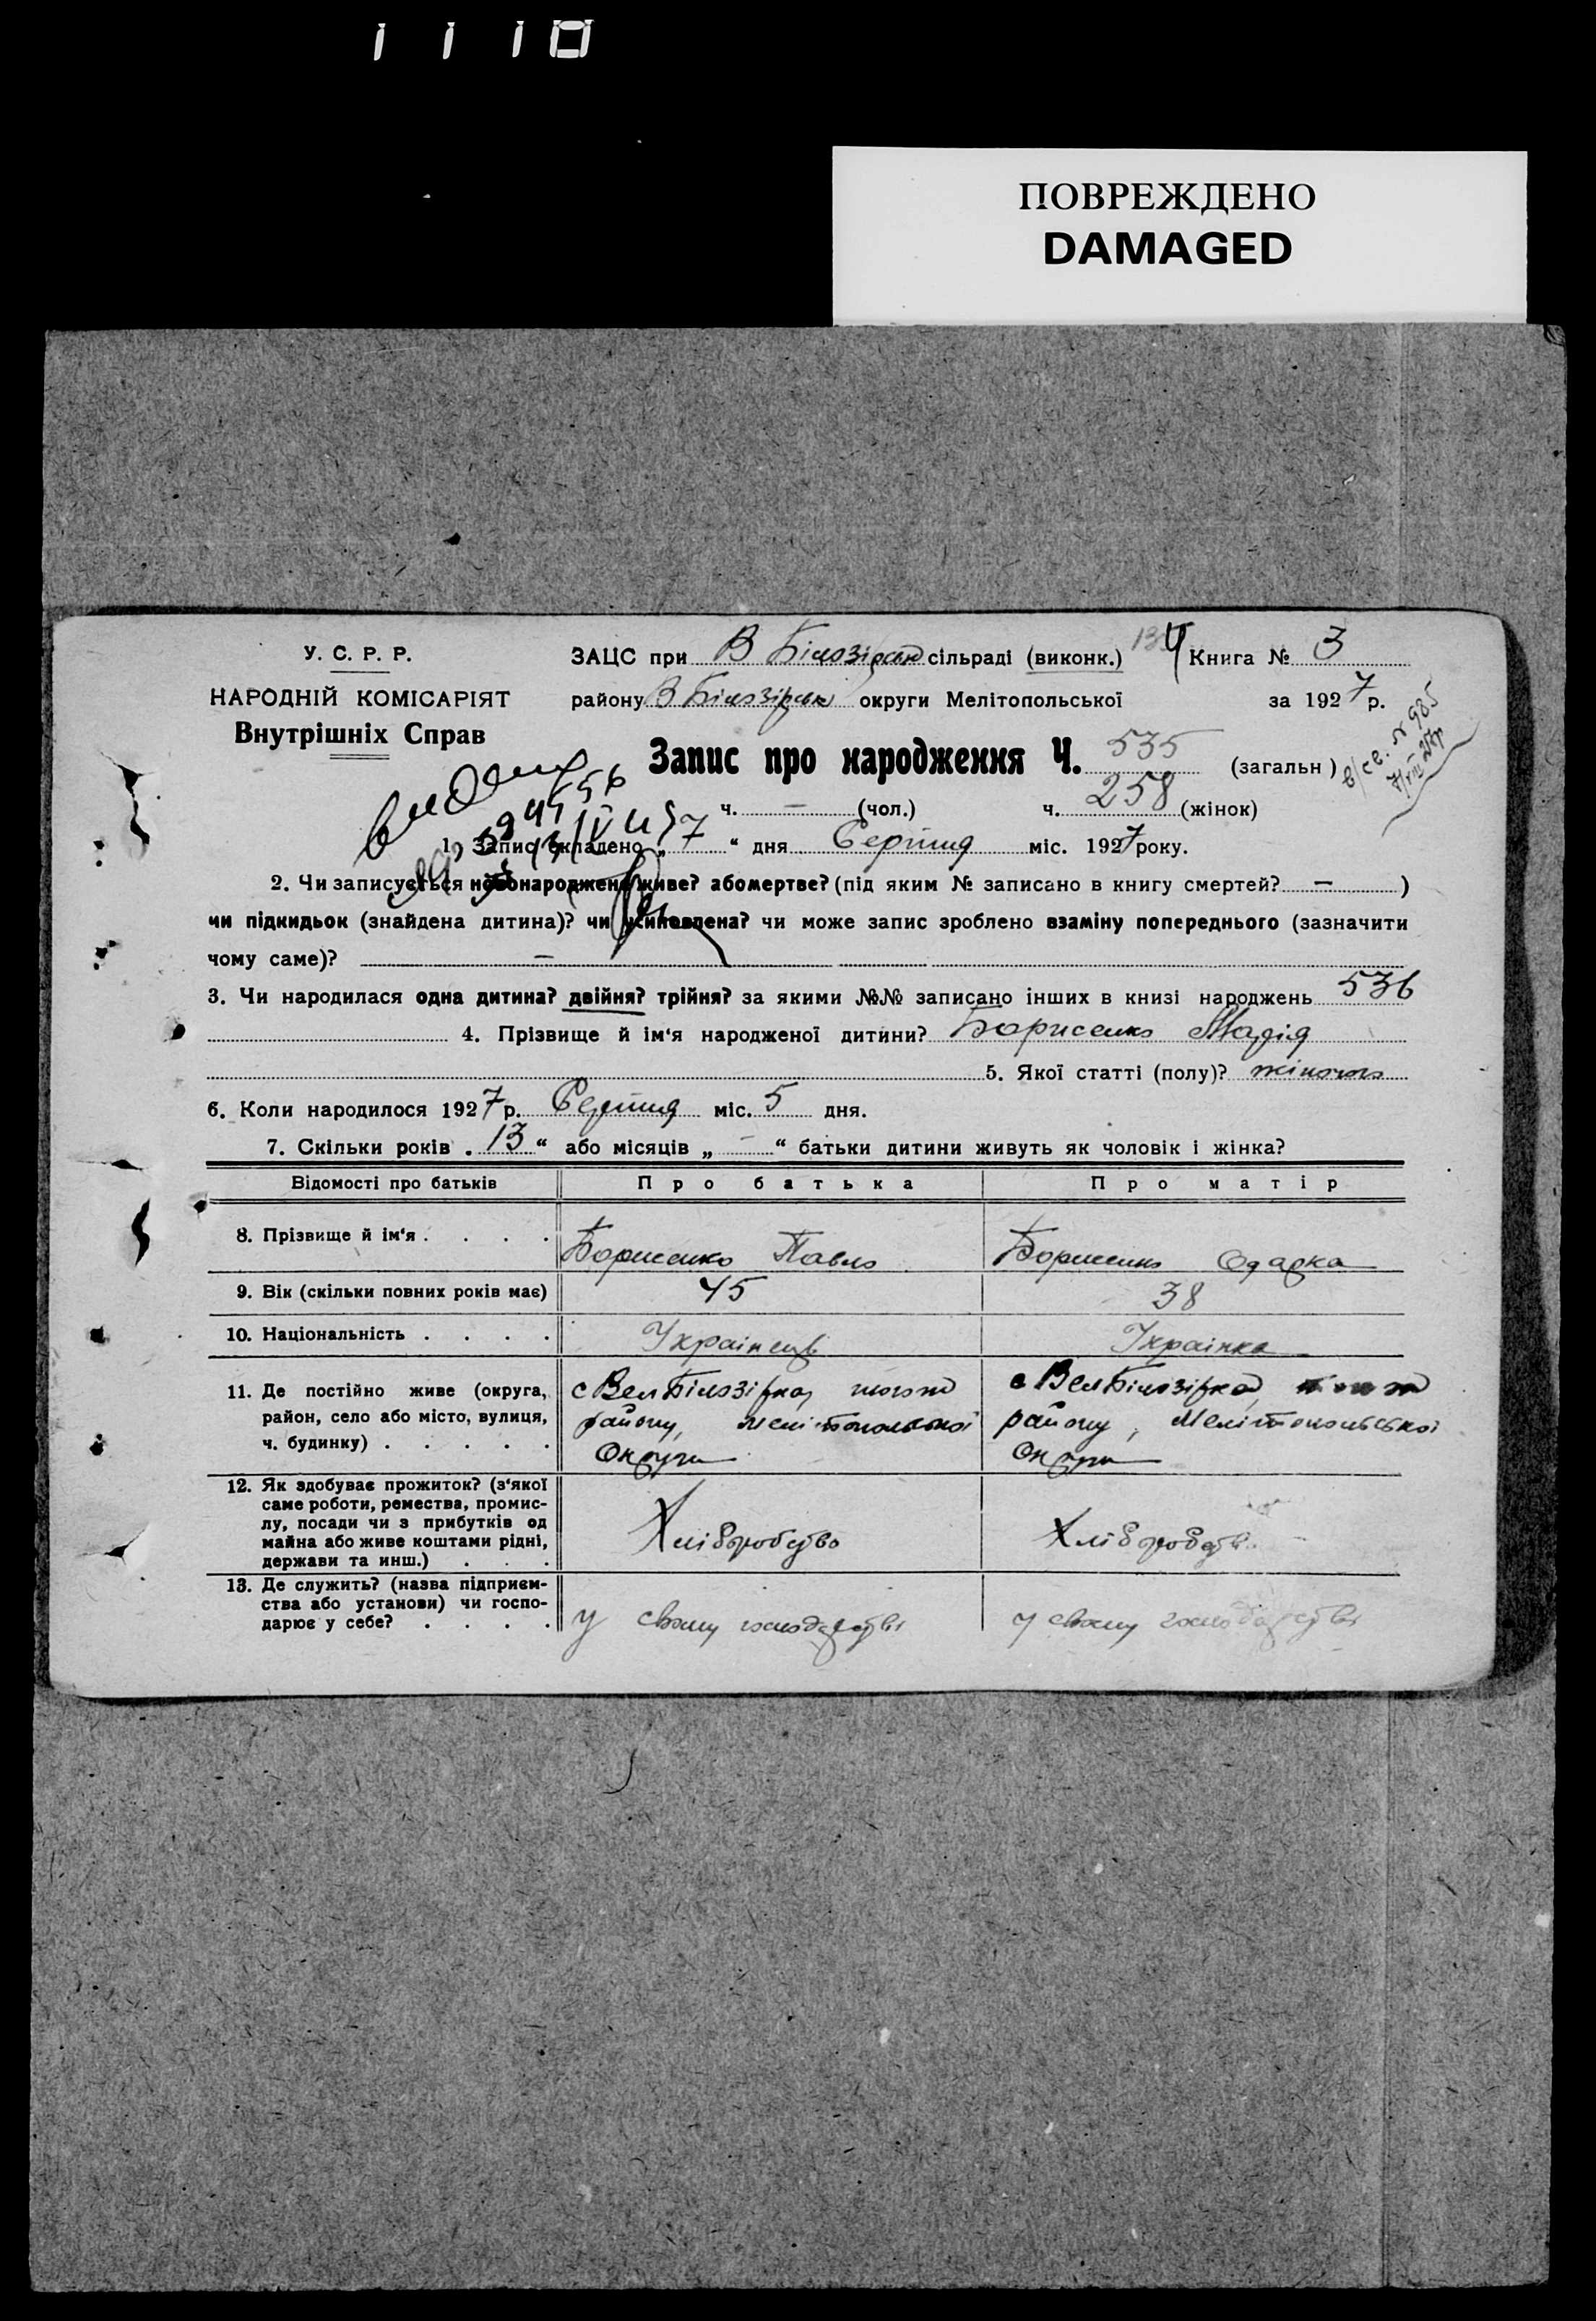 1110
ПОВРЕЖДЕНО
DAMAGED
У. С. Р. Р.
НАРОДНІЙ КОМІСАРІЯТ
Внутрішніх Справ
ЗАЦС при В Білозірськ сільраді (виконк.) Книга № 3
району В Білозірськ округи Мелітопольської за 1927 р.
Запис про народження Ч. 535 (загальн)
ч. — (чол.) ч. 258 (жінок)
1. Запис складено „ 7 “ дня Серпня міс. 1927 року.
2. Чи записується новонароджене живе? або мертве? (під яким № записано в книгу смертей? — )
чи підкидьок (знайдена дитина)? чи усиновлена? чи може запис зроблено взаміну попереднього (зазначити
чому саме)? —
3. Чи народилася одна дитина? двійня? трійня? за якими №№ записано інших в книзі народжень 536
4. Прізвище й ім‘я народженої дитини? Борисенко Марія
5. Якої статті (полу)? жіночого
6. Коли народилося 1927 р. Серпня міс. 5 дня.
7. Скільки років „ 13 “ або місяців „ — “ батьки дитини живуть як чоловік і жінка?
Відомості про батьків Про батька Про матір
8. Прізвище й ім‘я . . . . Борисенко Павло Борисенко Одарка
9. Вік (скільки повних років має) 45 38
10. Національність . . . . Українець Українка
11. Де постійно живе (округа, с Вел Білозірка, того ж с Вел Білозірка, того ж
район, село або місто, вулиця, району, Мелітопольської району, Мелітопольської
ч. будинку) . . . . . Округи Округи
12. Як здобуває прожиток? (з‘якої
саме роботи, ремества, промис-
лу, посади чи з прибутків од
майна або живе коштами рідні, Хліборобство Хліборобство
держави та инш.) . . .
13. Де служить? (назва підприєм-
ства або установи) чи госпо-
дарює у себе? . . . . у свому господарстві у свому господарстві